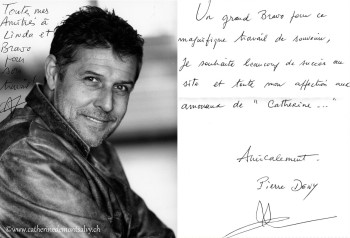 Toute mes
Amitiés à
Linda et
Bravo
pour
Un grand Bravo pour ce
magnifique travail de souvenir,
Je souhaite beaucoup de succès au
site et toute mon affection aux
amoureux de " Catherine ... "
Amicalement.
Pierre Deny
©www.catherinedemontsalvy.ch